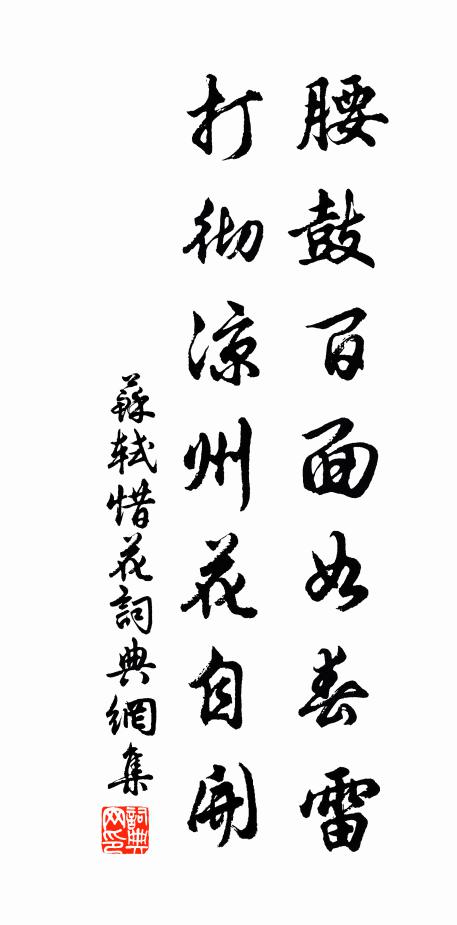 腰鼓百面如春雷
打彻涼州花自開
蘇軾惜花詞典網集
詞典网印